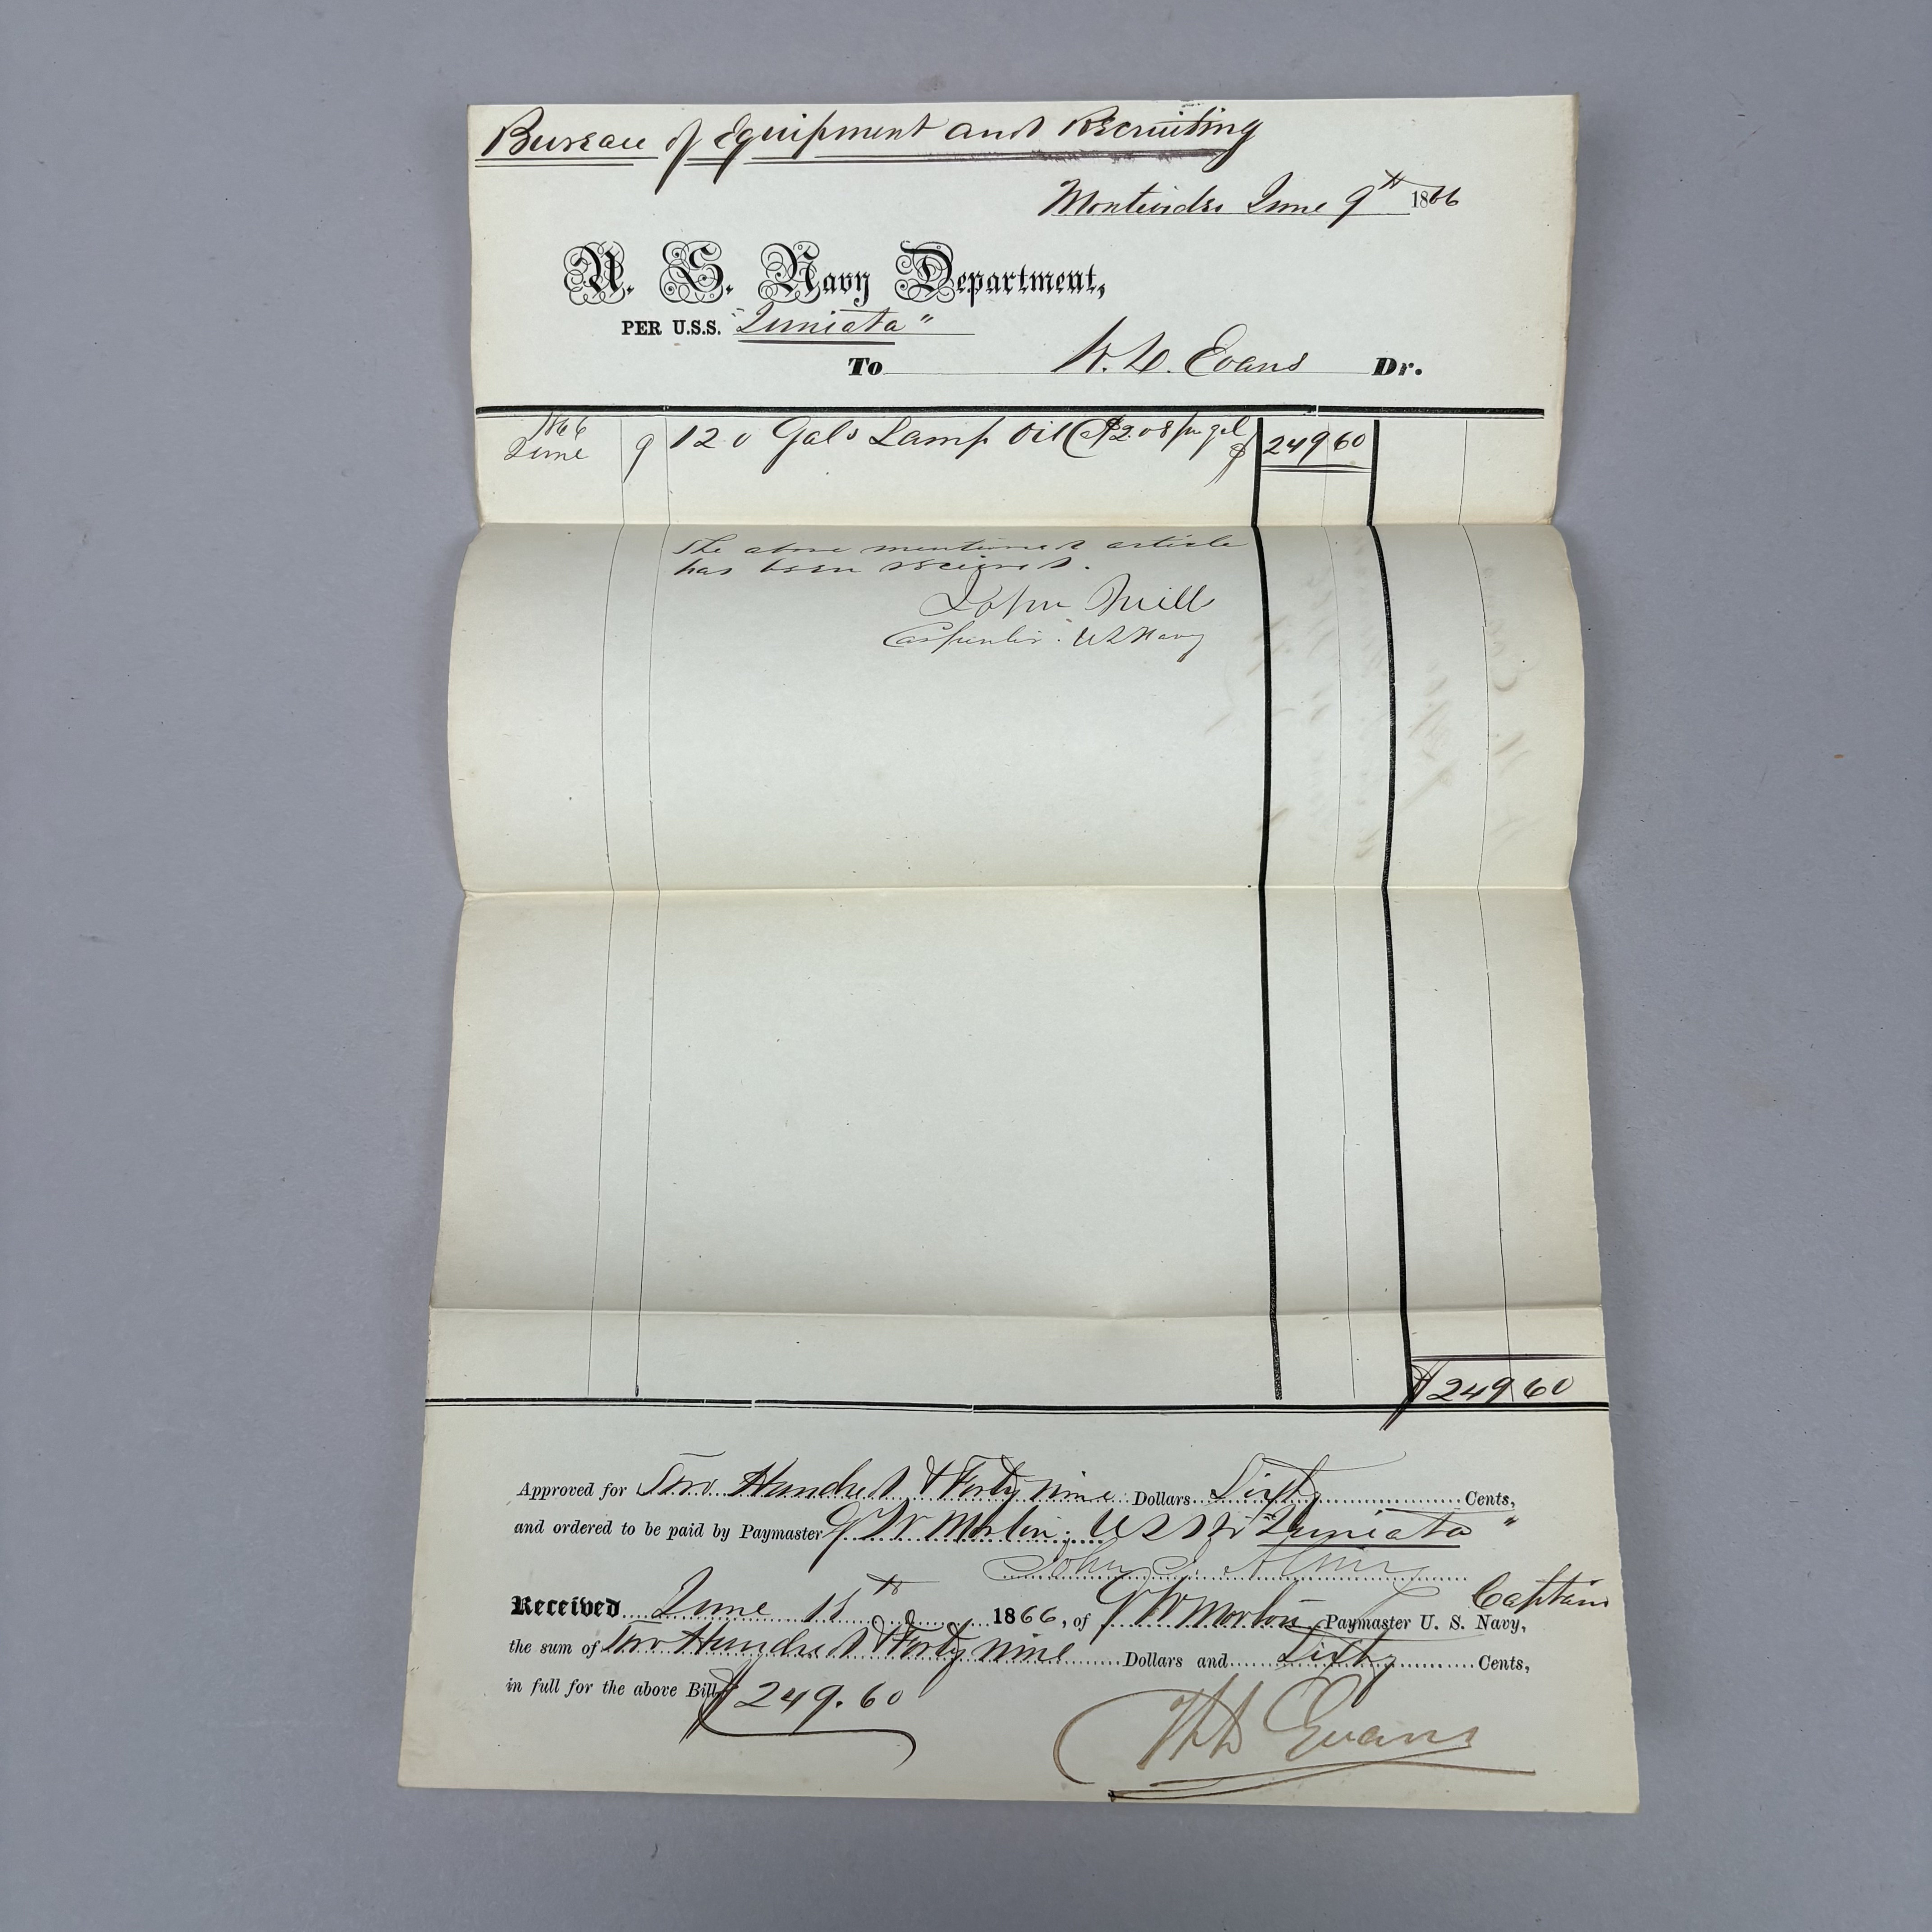 Bureau of Equipment and Recruiting
Montevideo June 9th 1866
U. S. Navy Department,
PER U.S.S. "Juniata"
To Evans Dr.
1866
June 9 120 Gals Lamp Oil @ $2.08 per gal $ 249 60
The above mentioned article
has been received.
John Mill
Carpenter. US Navy
$ 249 60
Approved for Two Hundred & Forty nine Dollars Sixty Cents,
and ordered to be paid by Paymaster U S Str "Juniata"
John
Captain
Received June 1866, of Paymaster U. S. Navy,
the sum of Two Hundred & Forty nine Dollars and Sixty Cents,
in full for the above Bill $249.60
Evans